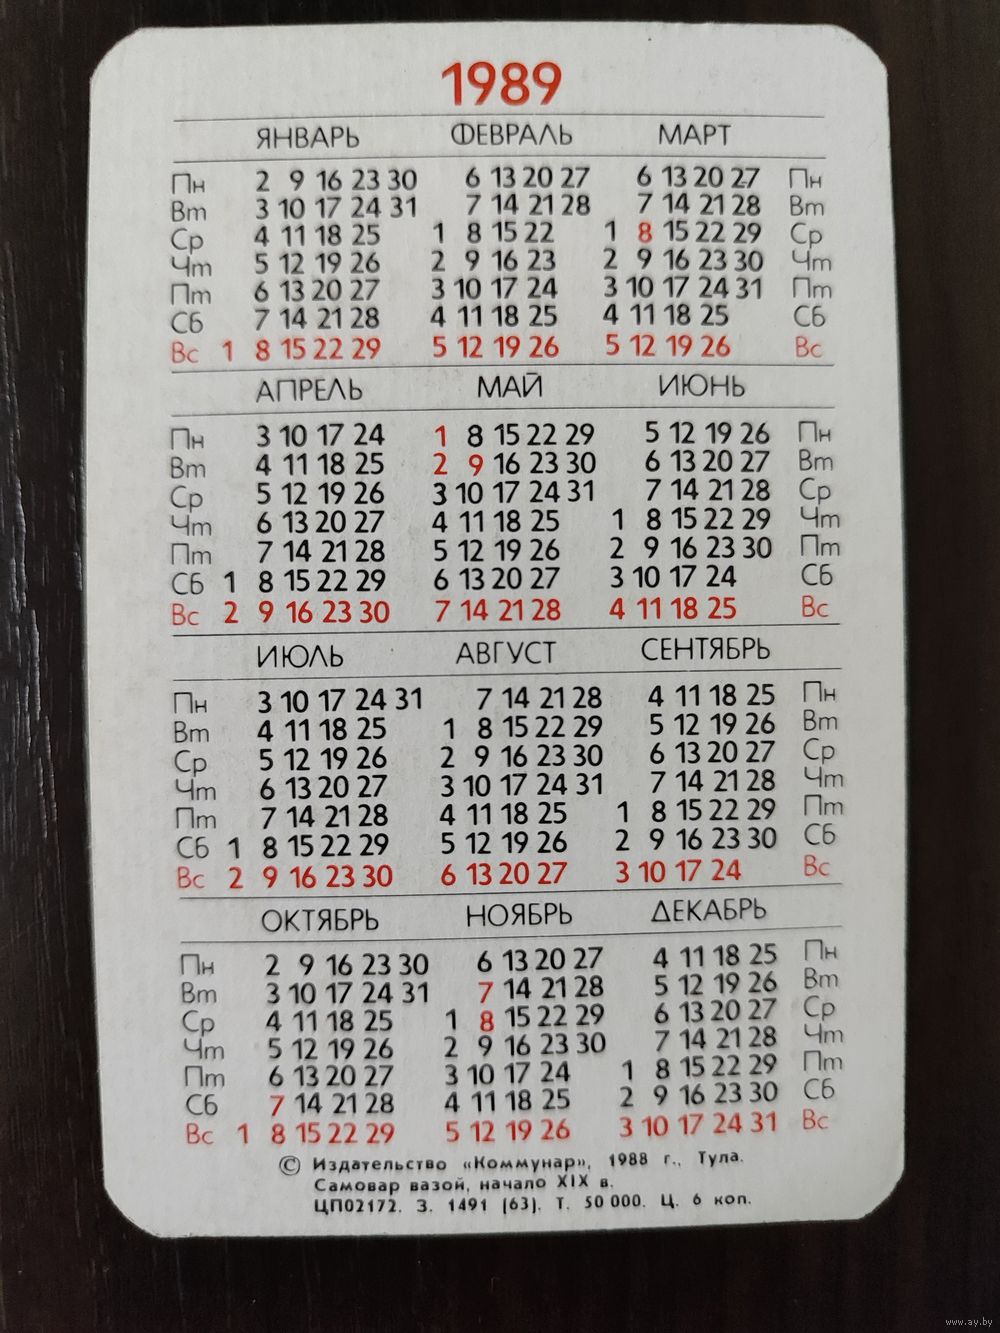 1989
ЯНВАРЬ ФЕВРАЛЬ МАРТ
Пн 2 9 16 23 30 6 13 20 27 6 13 20 27 Пн
Вт 3 10 17 24 31 7 14 21 28 7 14 21 28 Вт
Ср 4 11 18 25 1 8 15 22 1 8 15 22 29 Ср
Чт 5 12 19 26 2 9 16 23 2 9 16 23 30 Чт
Пт 6 13 20 27 3 10 17 24 3 10 17 24 31 Пт
Сб 7 14 21 28 4 11 18 25 4 11 18 25 Сб
Вс 1 8 15 22 29 5 12 19 26 5 12 19 26 Вс
АПРЕЛЬ МАЙ ИЮНЬ
Пн 3 10 17 24 1 8 15 22 29 5 12 19 26 Пн
Вт 4 11 18 25 2 9 16 23 30 6 13 20 27 Вт
Ср 5 12 19 26 3 10 17 24 31 7 14 21 28 Ср
Чт 6 13 20 27 4 11 18 25 1 8 15 22 29 Чт
Пт 7 14 21 28 5 12 19 26 2 9 16 23 30 Пт
Сб 1 8 15 22 29 6 13 20 27 3 10 17 24 Сб
Вс 2 9 16 23 30 7 14 21 28 4 11 18 25 Вс
ИЮЛЬ АВГУСТ СЕНТЯБРЬ
Пн 3 10 17 24 31 7 14 21 28 4 11 18 25 Пн
Вт 4 11 18 25 1 8 15 22 29 5 12 19 26 Вт
Ср 5 12 19 26 2 9 16 23 30 6 13 20 27 Ср
Чт 6 13 20 27 3 10 17 24 31 7 14 21 28 Чт
Пт 7 14 21 28 4 11 18 25 1 8 15 22 29 Пт
Сб 1 8 15 22 29 5 12 19 26 2 9 16 23 30 Сб
Вс 2 9 16 23 30 6 13 20 27 3 10 17 24 Вс
ОКТЯБРЬ НОЯБРЬ ДЕКАБРЬ
Пн 2 9 16 23 30 6 13 20 27 4 11 18 25 Пн
Вт 3 10 17 24 31 7 14 21 28 5 12 19 26 Вт
Ср 4 11 18 25 1 8 15 22 29 6 13 20 27 Ср
Чт 5 12 19 26 2 9 16 23 30 7 14 21 28 Чт
Пт 6 13 20 27 3 10 17 24 1 8 15 22 29 Пт
Сб 7 14 21 28 4 11 18 25 2 9 16 23 30 Сб
Вс 1 8 15 22 29 5 12 19 26 3 10 17 24 31 Вс
© Издательство «Коммунар», 1988 г., Тула.
Самовар вазой, начало XIX в.
ЦП02172. З. 1491 (63). Т. 50 000. Ц. 6 коп.
www.ay.by